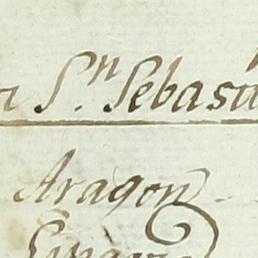 Sn. Sebasti
Aragon